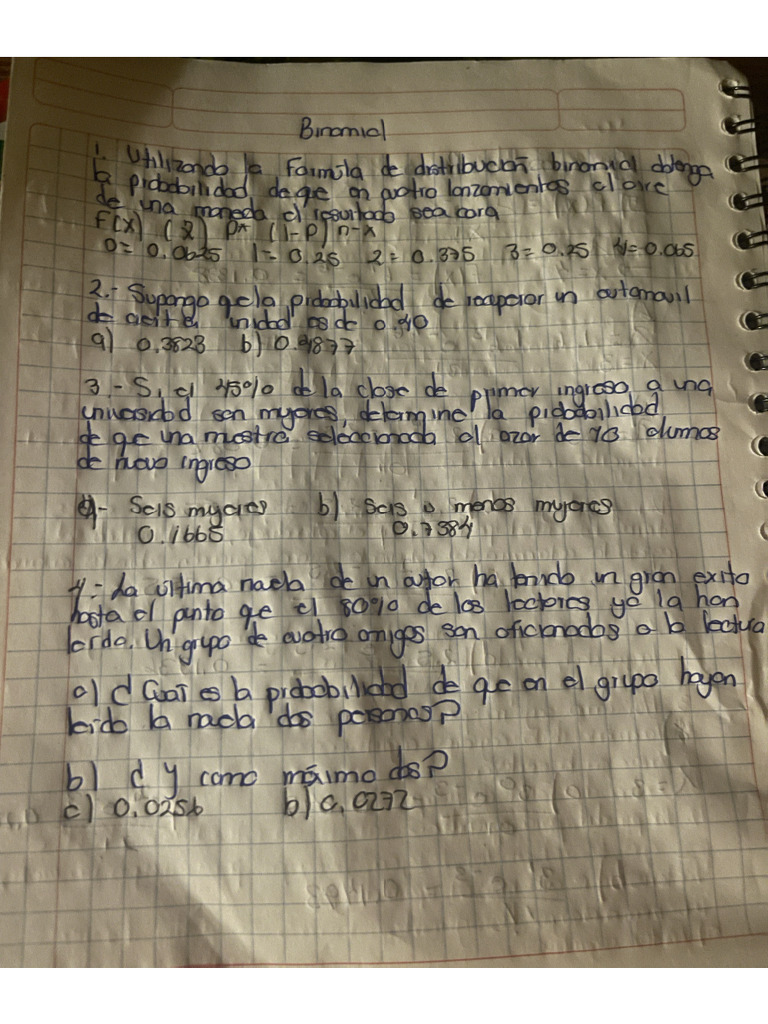 Binomial
1. Utilizando la Formula de distribución binomial obtenga
la probabilidad de que en cuatro lanzamientos al aire
de una moneda el resultado sea cara
F(x) (x) px (1-p) n-x
0= 0.0625 1= 0.25 2= 0.375 3= 0.25 4= 0.065
2.- Suponga que la probabilidad de recuperar un automovil
de en esta unidad es de 0.40
a) 0.3823 b) 0.4877
3.- Si el 45% de la clase de primer ingreso a una
universidad son mujeres, determine la probabilidad
de que una muestra seleccionada al azar de alumnos
de nuevo ingreso
a- Seis mujeres b) seis o menos mujeres
0.1665 0.7384
4.- La ultima novela de un autor ha tenido un gran exito
hasta el punto que el 80% de los lectores ya la han
leido. Un grupo de cuatro amigos son aficionados a la lectura
a) ¿Cual es la probabilidad de que en el grupo hayan
leido la novela dos personas?
b) ¿ y como máximo dos?
c) 0.0256 b) 0,0272